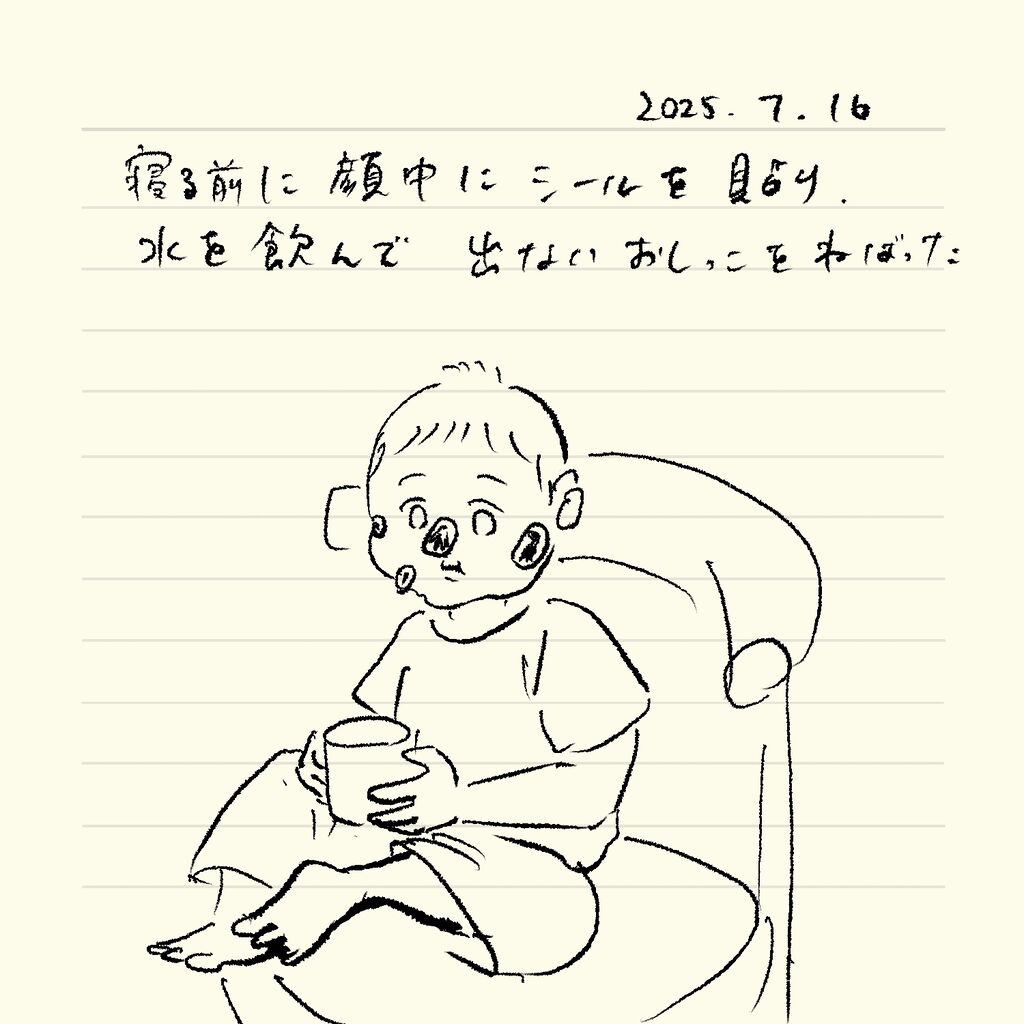 2025. 7. 16
寝る前に 顔中に シールを 貼り.
水を飲んで 出ない おしっこを ねばった